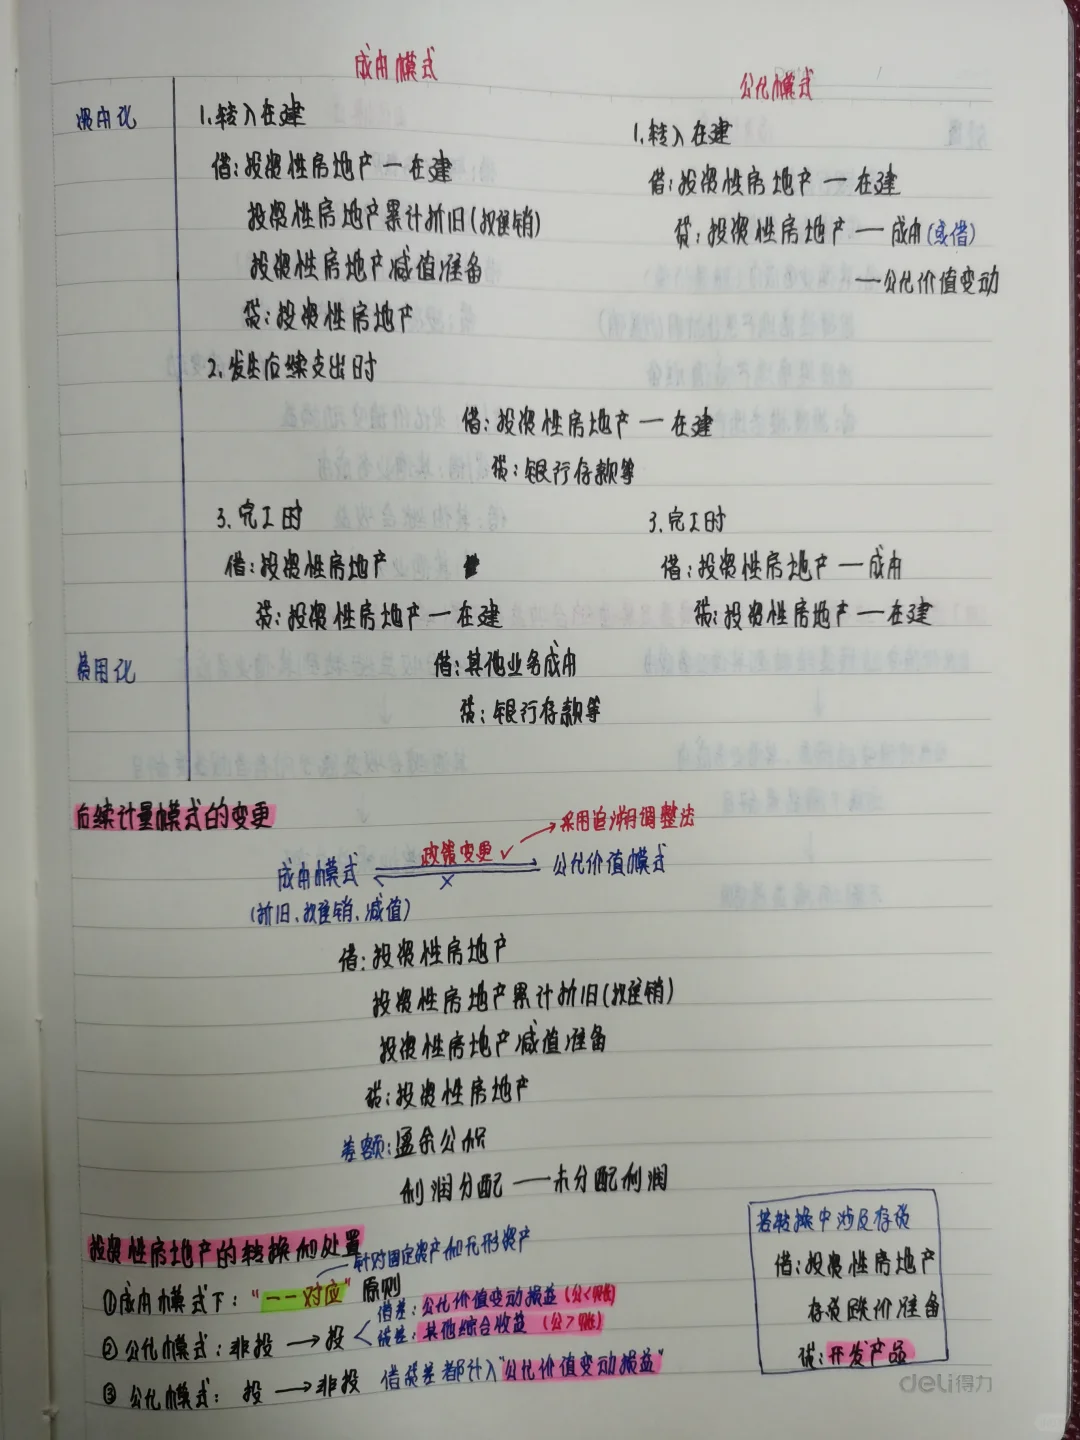 成本模式
公允模式
资本化
1.转入在建
借:投资性房地产—在建
投资性房地产累计折旧(摊销)
投资性房地产减值准备
贷:投资性房地产
1.转入在建
借:投资性房地产—在建
贷:投资性房地产—成本(或借)
—公允价值变动
2.发生后续支出时
借:投资性房地产—在建
贷:银行存款等
3.完工时
借:投资性房地产
贷:投资性房地产—在建
3.完工时
借:投资性房地产—成本
贷:投资性房地产—在建
费用化
借:其他业务成本
贷:银行存款等
后续计量模式的变更
采用追溯调整法
政策变更 ✓
成本模式
公允价值模式
×
(折旧、摊销、减值)
借:投资性房地产
投资性房地产累计折旧(摊销)
投资性房地产减值准备
贷:投资性房地产
差额:盈余公积
利润分配—未分配利润
投资性房地产的转换和处置
针对固定资产和无形资产
①成本模式下:"一一对应"原则
②公允模式:非投→投
借差:公允价值变动损益(公<账)
贷差:其他综合收益(公>账)
③公允模式:投→非投 借贷差都计入"公允价值变动损益"
若转换中涉及存货
借:投资性房地产
存货跌价准备
贷:开发产品
deli得力